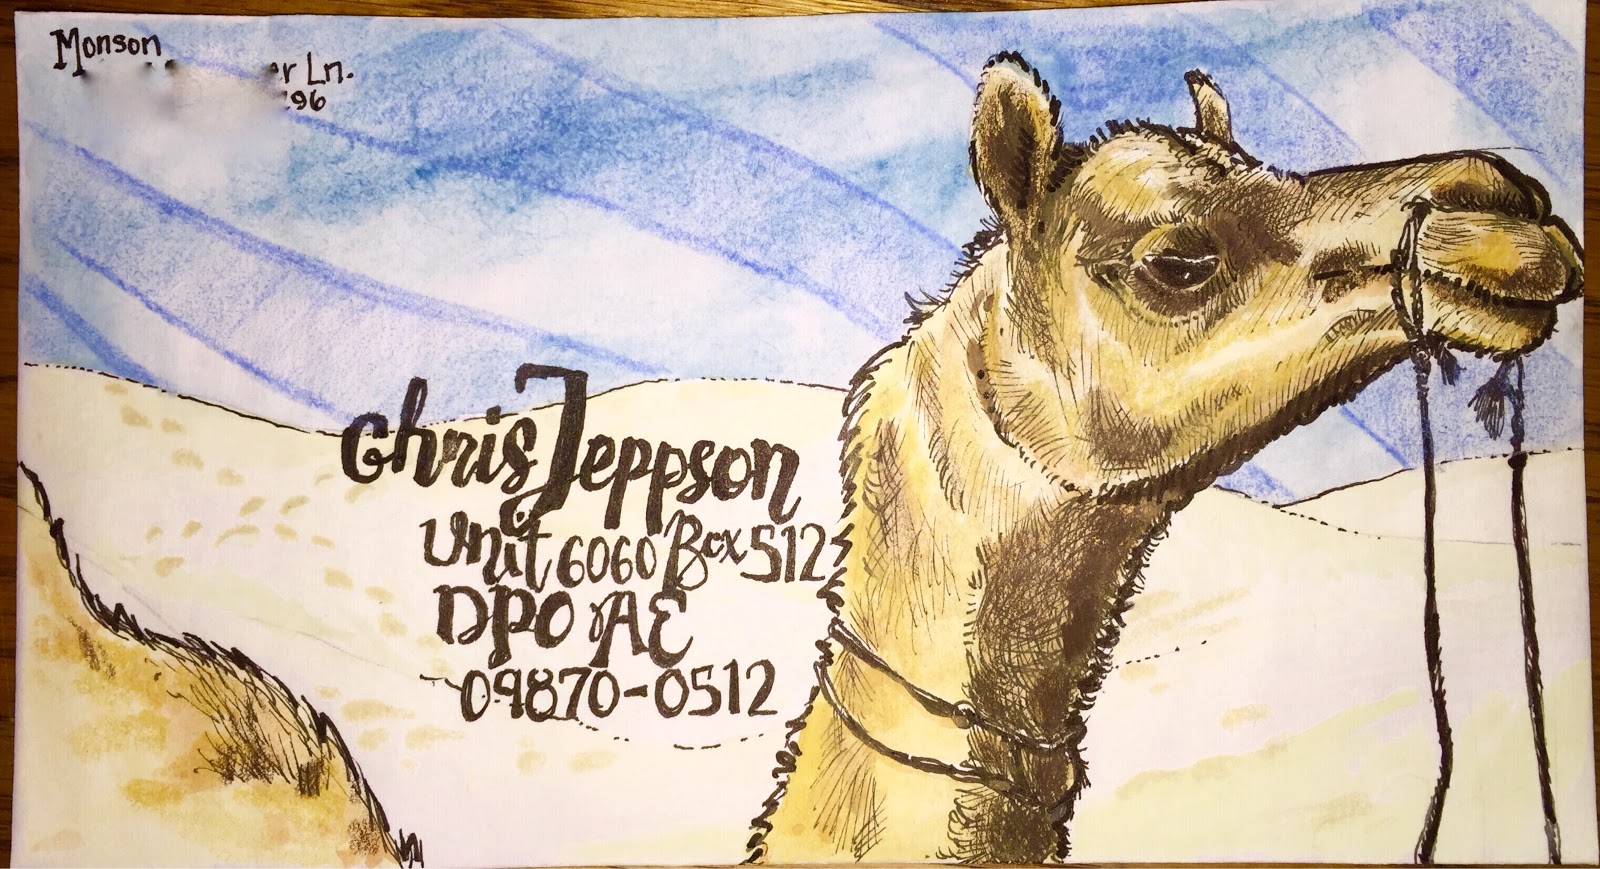 Monson
Ln.
96
Chris Jeppson
Unit 6060 Box 512
DPO AE
09870-0512